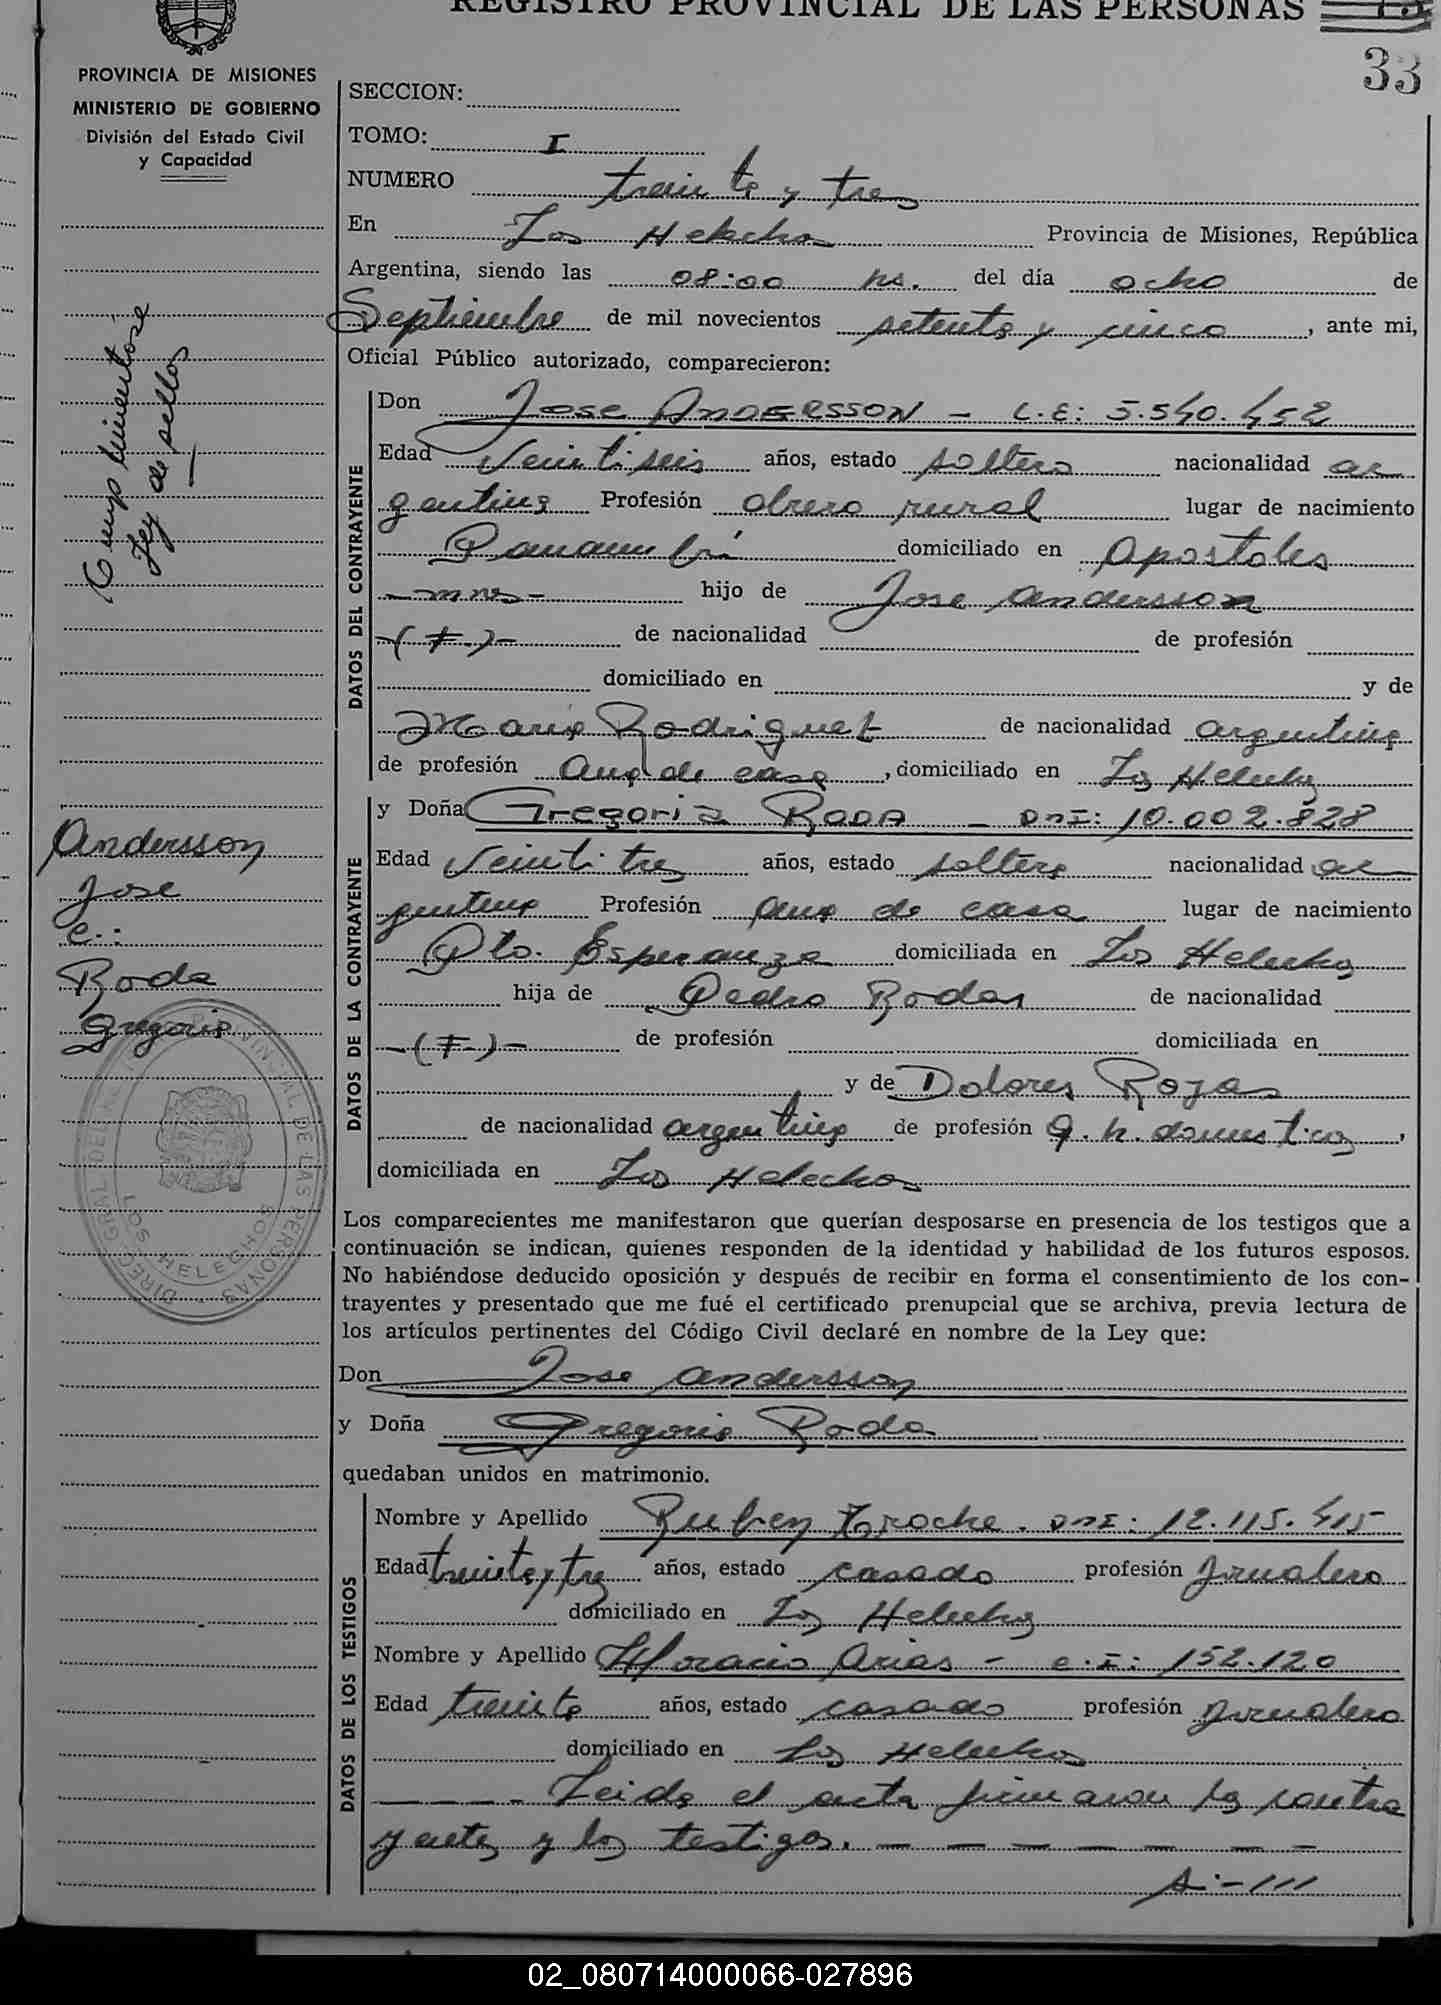 REGISTRO PROVINCIAL DE LAS PERSONAS
33
PROVINCIA DE MISIONES
MINISTERIO DE GOBIERNO
División del Estado Civil
y Capacidad
SECCION:
TOMO: I
NUMERO treinta y tres
En Los Helechos Provincia de Misiones, República
Argentina, siendo las 08:00 hs. del día ocho de
Septiembre de mil novecientos setenta y cinco, ante mi,
Oficial Público autorizado, comparecieron:
Cumplimentóse
Ley de sellos
DATOS DEL CONTRAYENTE
Don Jose ANDERSSON - L.E: 5.540.452
Edad Veintiseis años, estado soltero nacionalidad ar
gentina Profesión obrero rural lugar de nacimiento
Panambí domiciliado en Apostoles
-mnes- hijo de Jose Andersson
-(F.)- de nacionalidad de profesión
domiciliado en y de
Maria Rodriguez de nacionalidad argentina
de profesión ama de casa, domiciliado en Los Helechos
DATOS DE LA CONTRAYENTE
y Doña Gregoria RODA - DNI: 10.002.828
Edad Veintitres años, estado soltera nacionalidad ar
gentina Profesión ama de casa lugar de nacimiento
Pto. Esperanza domiciliada en Los Helechos
hija de Pedro Rodas de nacionalidad
-(F.)- de profesión domiciliada en
y de Dolores Rojas
de nacionalidad argentina de profesión q. h. domesticos,
domiciliada en Los Helechos
Andersson
Jose
c.:
Roda
Gregoria
DIREC. GRAL. DEL REG. PROVINCIAL DE LAS PERSONAS
LOS HELECHOS
Los comparecientes me manifestaron que querían desposarse en presencia de los testigos que a
continuación se indican, quienes responden de la identidad y habilidad de los futuros esposos.
No habiéndose deducido oposición y después de recibir en forma el consentimiento de los con-
trayentes y presentado que me fué el certificado prenupcial que se archiva, previa lectura de
los artículos pertinentes del Código Civil declaré en nombre de la Ley que:
Don Jose Andersson
y Doña Gregoria Roda
quedaban unidos en matrimonio.
DATOS DE LOS TESTIGOS
Nombre y Apellido Ruben Troche. DNI: 12.115.415
Edad treinta y tres años, estado casado profesión Jornalero
domiciliado en Los Helechos
Nombre y Apellido Horacio Arias - C.I: 152.120
Edad treinta años, estado casado profesión Jornalero
domiciliado en Los Helechos
----. Leida el acta firmaron los contra
yentes y los testigos. - - - - - - -
02_080714000066-027896